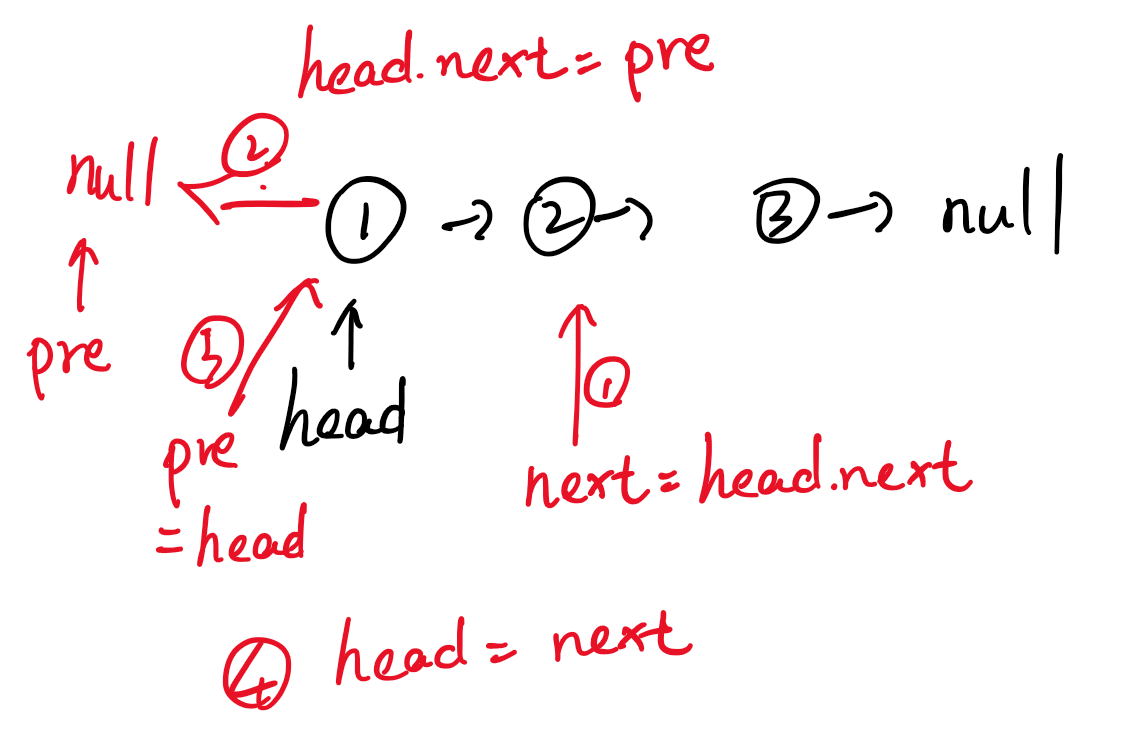 head.next = pre
②
null ① → ② → ③ → null
pre ③ head ①
pre
= head
next = head.next
④ head = next